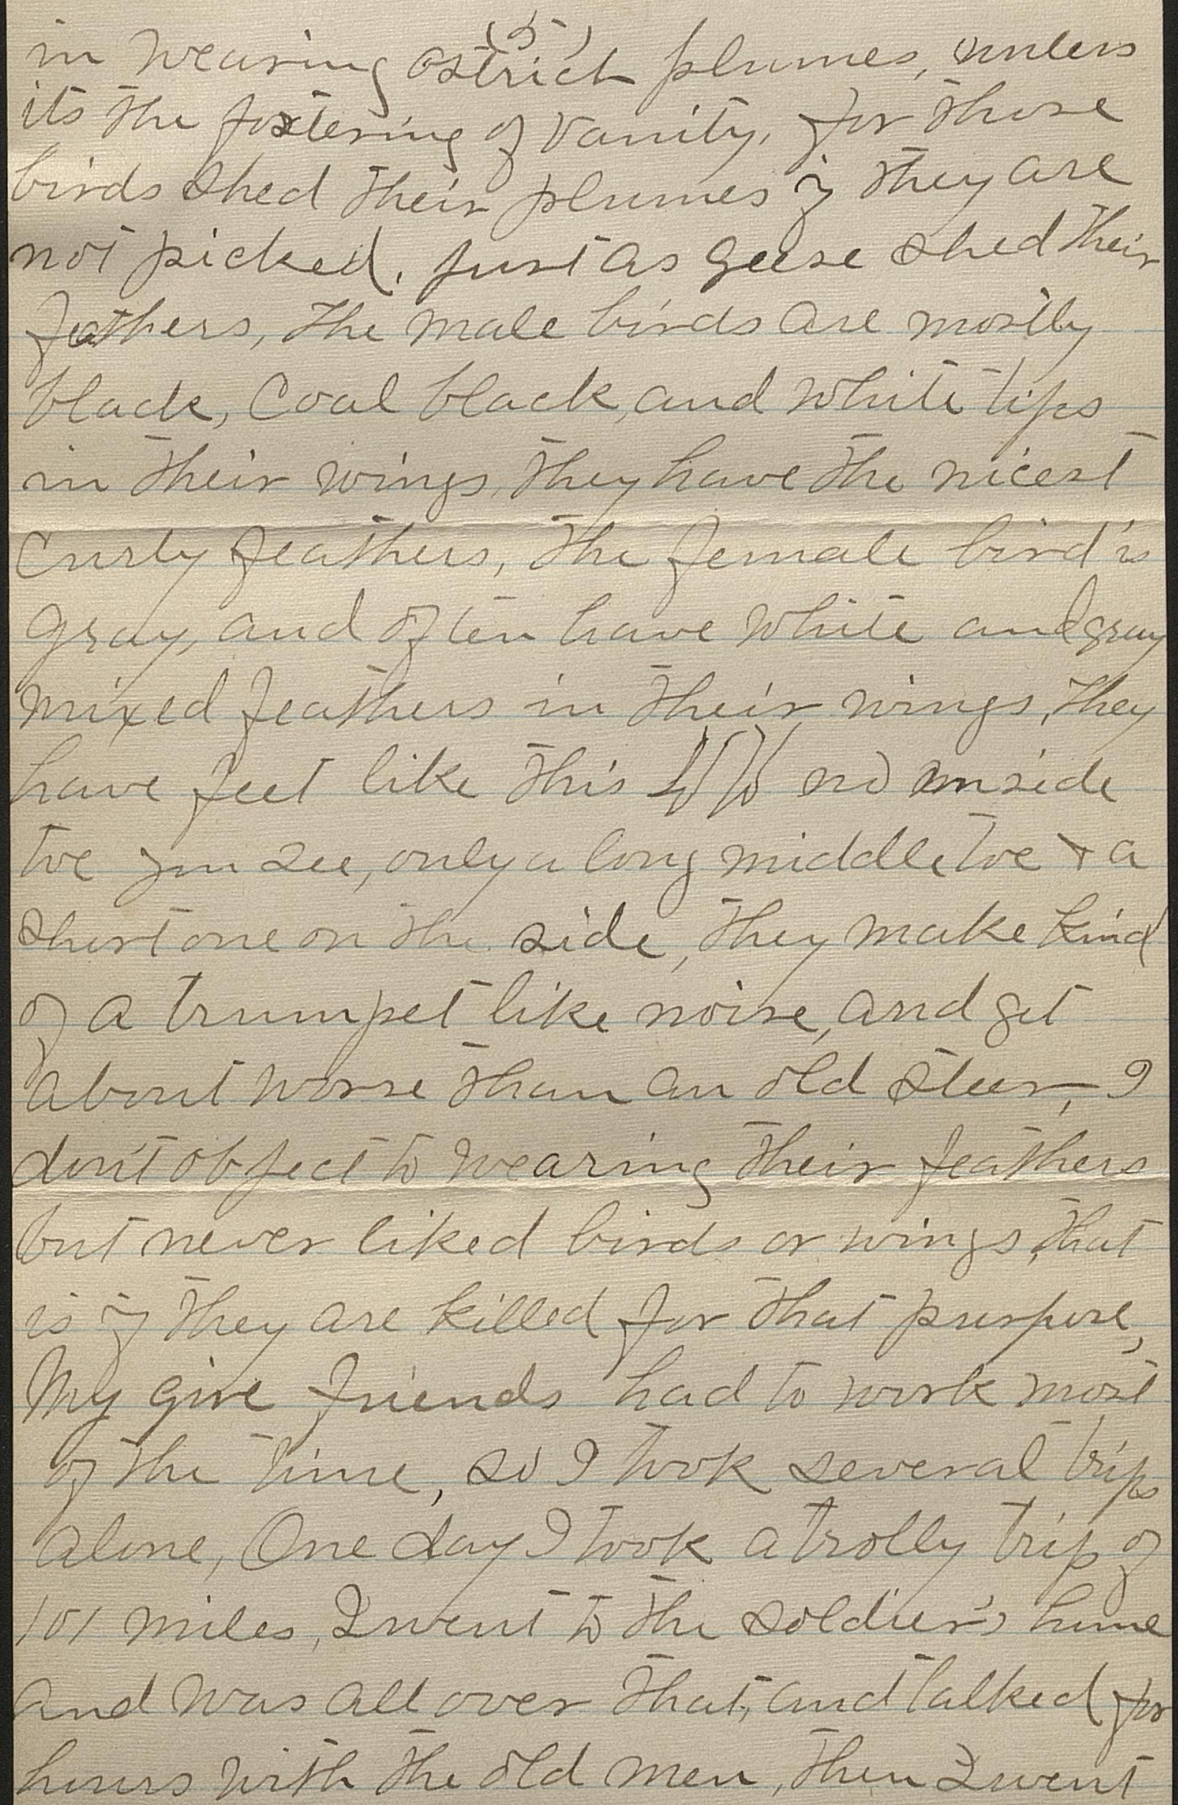 (5)
in wearing ostrich plumes, unless
its the fostering of vanity, for those
birds shed their plumes if they are
not picked, just as geese shed their
feathers, the male birds are mostly
black, Coal black, and white tips
in their wings, they have the nicest
curly feathers, the female bird is
gray, and often have white and gray
mixed feathers in their wings, they
have feet like this no inside
toe you see, only a long middle toe + a
short one on the side, they make kind
of a trumpet like noise, and get
about worse than an old steer, I
don't object to wearing their feathers
but never liked birds or wings, that
is if they are killed for that purpose,
My give friends had to work most
of the time, so I took several trips
alone, One day I took a trolly trip of
101 miles, I went to the soldier's home
and was all over that, and talked for
hours with the old men, then I went